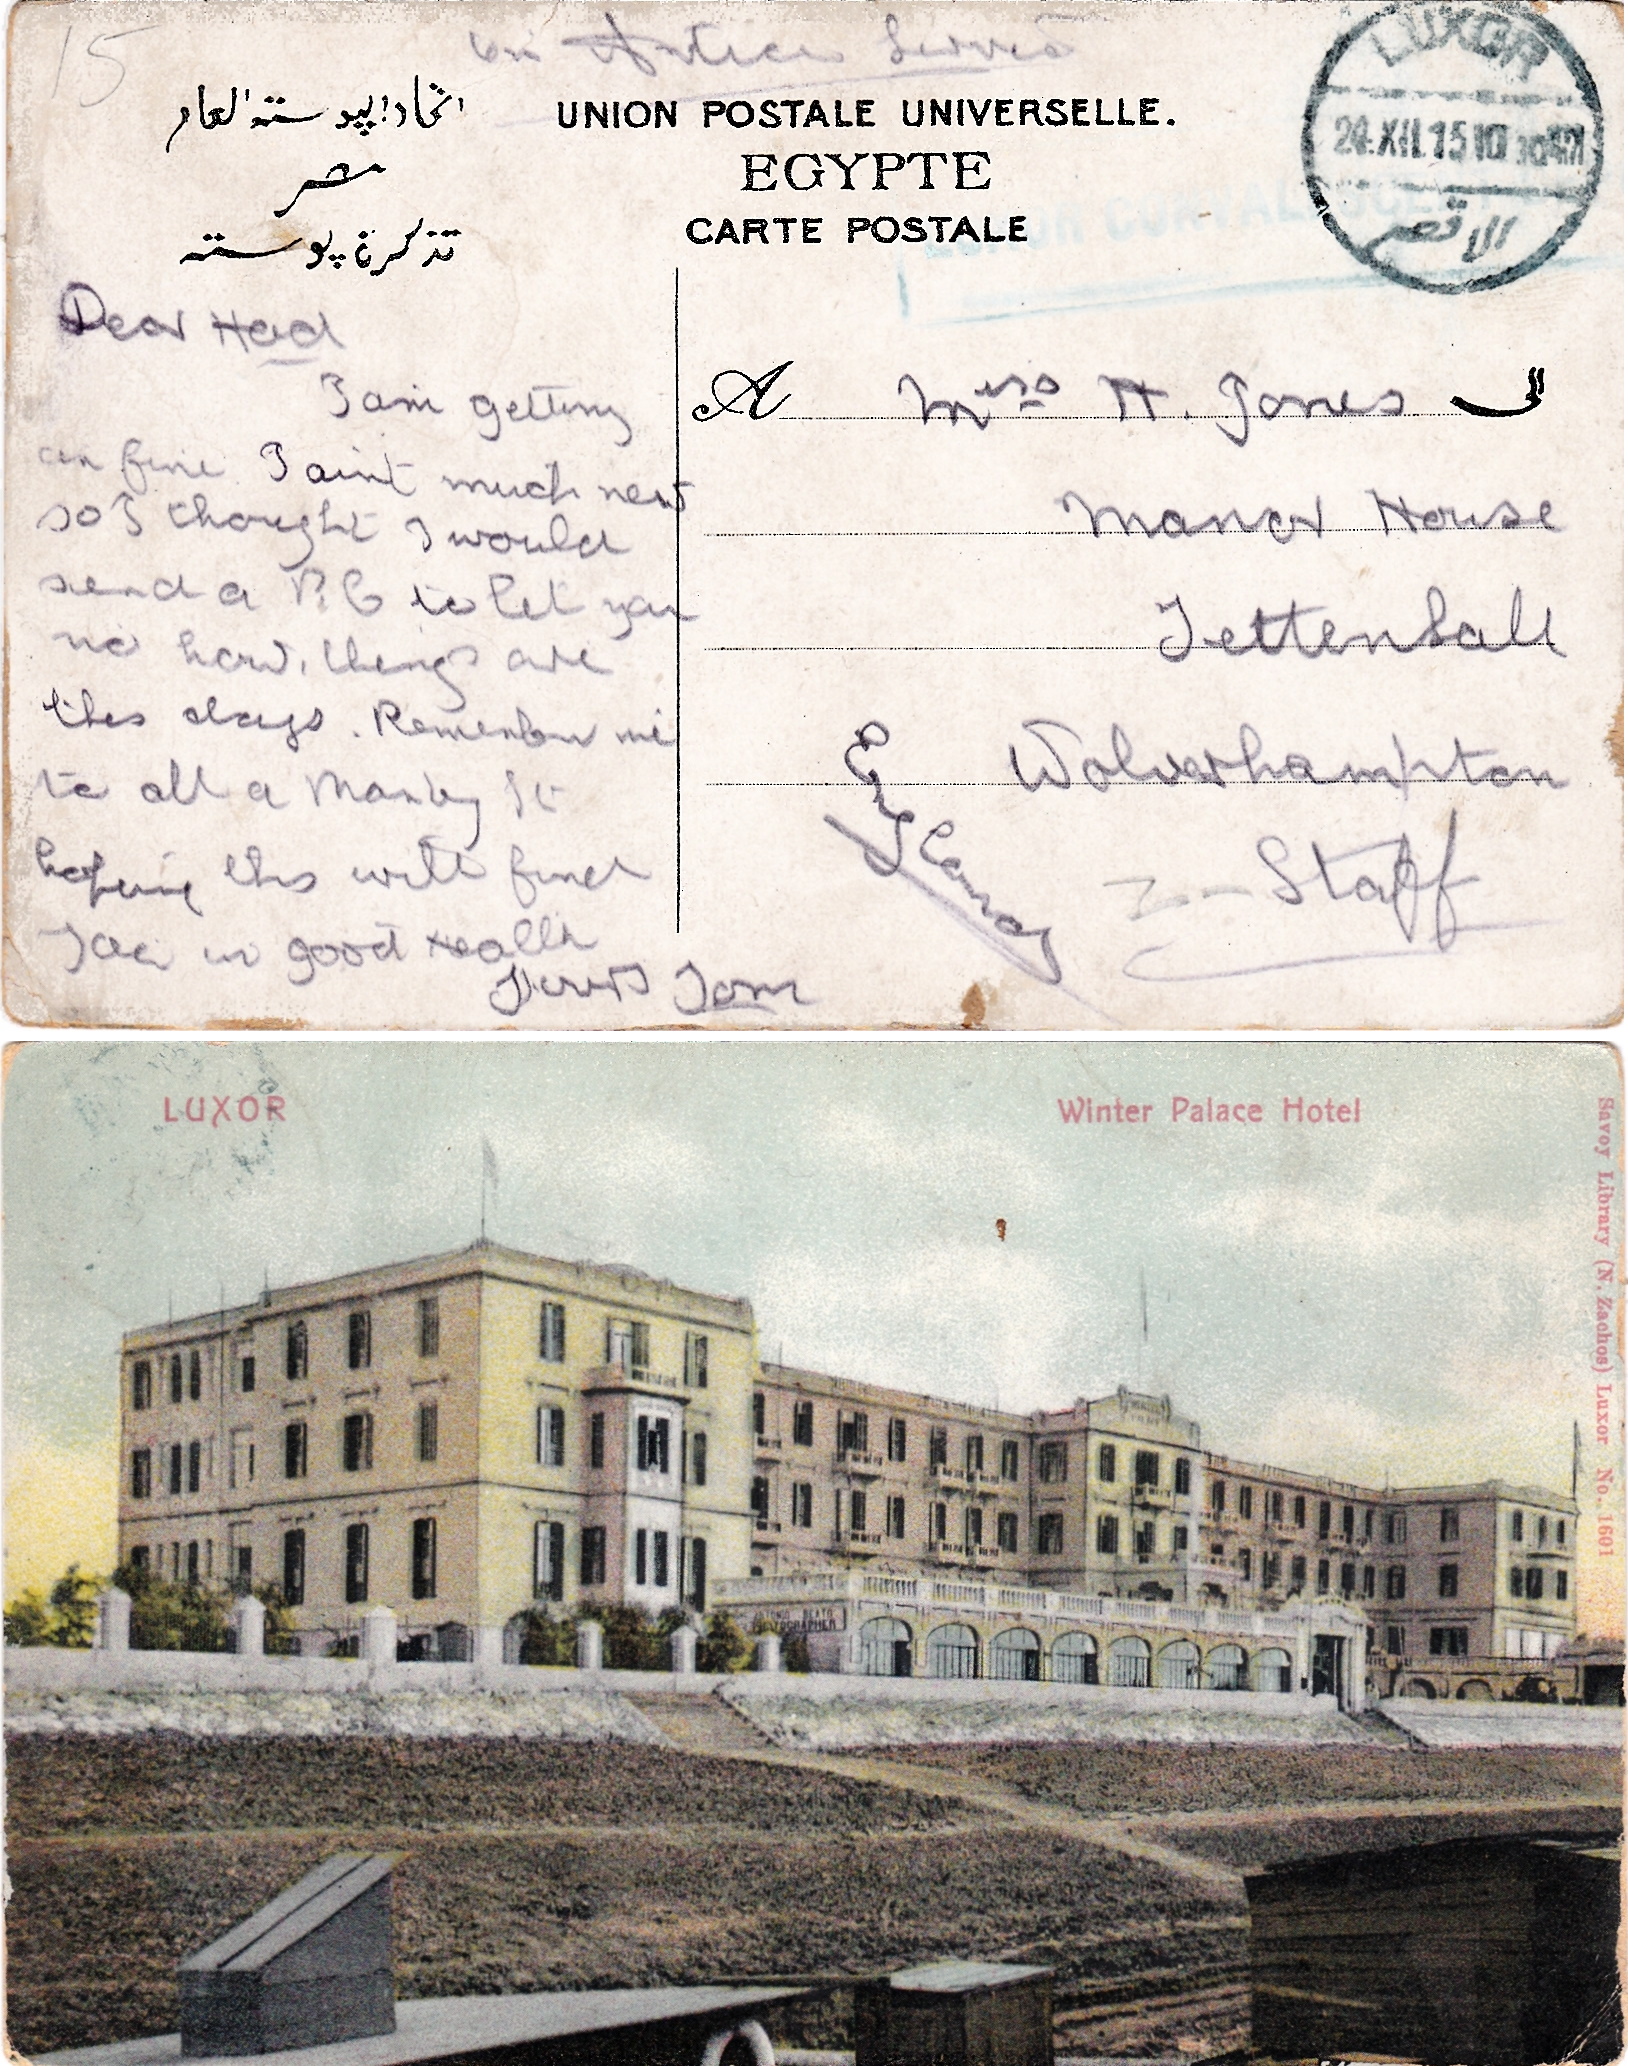 15
on Active Service
UNION POSTALE UNIVERSELLE.
EGYPTE
CARTE POSTALE
اتحاد البوسته العام
مصر
تذكرة بوسته
LUXOR
XII.15 10
الاقصر
LUXOR CONVALESCENT
Dear Had
I am getting
on fine I aint much news
so I thought I would
send a P.C to let you
no how things are
thes days. Remember me
to all a Manby St
hopeing this will find
in good Health
Tom
A Mrs H. Jones الى
Manor House
Tettenhall
Wolverhampton
Staff
England
LUXOR
Winter Palace Hotel
Savoy Library (N. Zachos) Luxor No. 1601
ANTONIO BEATO
PHOTOGRAPHER